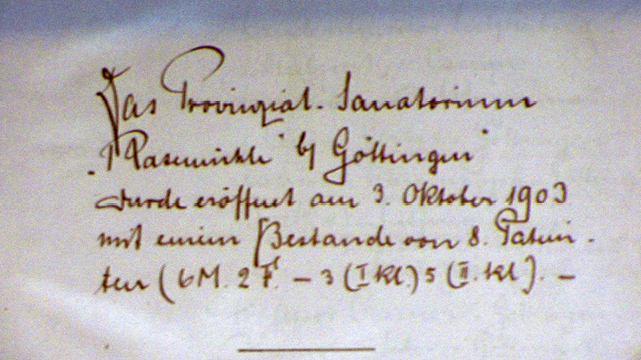 Das Provinzial-Sanatorium
„Rasemühle“ b/ Göttingen
wurde eröffnet am 3. Oktober 1903
mit einem Bestande von 8. Patien-
ten (6 M. 2 F. – 3 (I Kl.) 5 (II. Kl). –